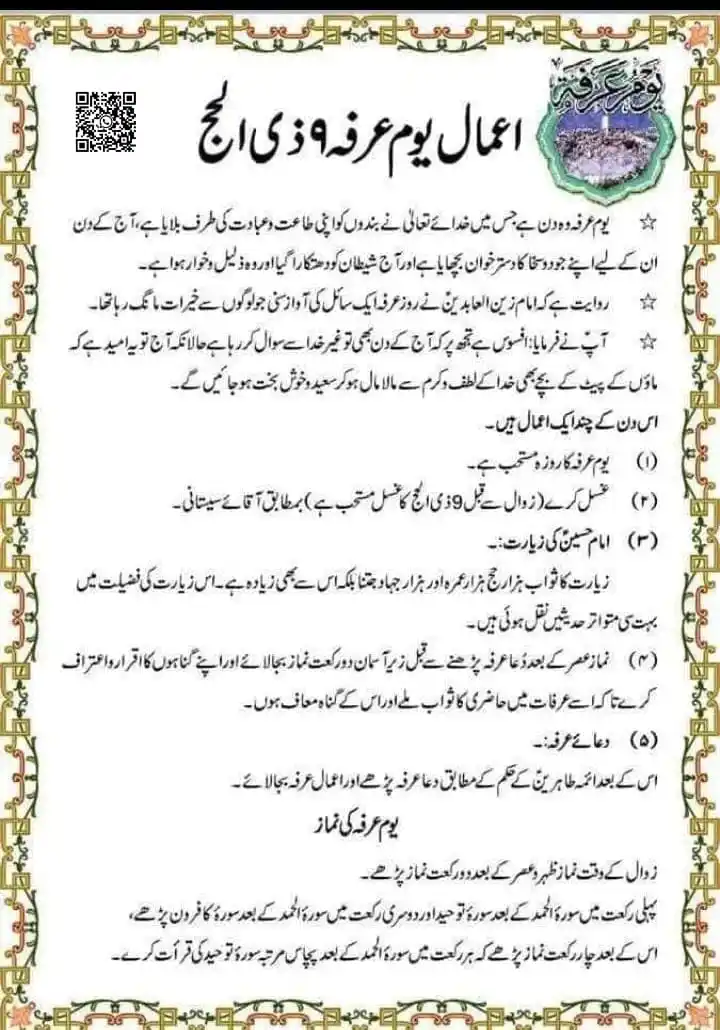 یَوْم عَرَفَة
اعمال یوم عرفہ ۹ ذی الحج
☆ یوم عرفہ وہ دن ہے جس میں خدائے تعالیٰ نے بندوں کو اپنی طاعت و عبادت کی طرف بلایا ہے، آج کے دن
ان کے لیے اپنے جود و سخا کا دستر خوان بچھایا ہے اور آج شیطان کو دھتکارا گیا اور وہ ذلیل و خوار ہوا ہے۔
☆ روایت ہے کہ امام زین العابدینؑ نے روز عرفہ ایک سائل کی آواز سنی جو لوگوں سے خیرات مانگ رہا تھا۔
☆ آپؑ نے فرمایا: افسوس ہے تجھ پر کہ آج کے دن بھی تو غیر خدا سے سوال کر رہا ہے حالانکہ آج تو یہ امید ہے کہ
ماؤں کے پیٹ کے بچے بھی خدا کے لطف و کرم سے مالا مال ہو کر سعید و خوش بخت ہو جائیں گے۔
اس دن کے چند ایک اعمال ہیں۔
(۱) یوم عرفہ کا روزہ مستحب ہے۔
(۲) غسل کرے (زوال سے قبل 9 ذی الحج کا غسل مستحب ہے) بمطابق آقائے سیستانی۔
(۳) امام حسینؑ کی زیارت:۔
زیارت کا ثواب ہزار حج ہزار عمرہ اور ہزار جہاد جتنا بلکہ اس سے بھی زیادہ ہے۔ اس زیارت کی فضیلت میں
بہت سی متواتر حدیثیں نقل ہوئی ہیں۔
(۴) نماز عصر کے بعد دُعا عرفہ پڑھنے سے قبل زیر آسمان دو رکعت نماز بجا لائے اور اپنے گناہوں کا اقرار و اعتراف
کرے تا کہ اسے عرفات میں حاضری کا ثواب ملے اور اس کے گناہ معاف ہوں۔
(۵) دعائے عرفہ:۔
اس کے بعد ائمہ طاہرینؑ کے حکم کے مطابق دعا عرفہ پڑھے اور اعمال عرفہ بجا لائے۔
یوم عرفہ کی نماز
زوال کے وقت نماز ظہر و عصر کے بعد دو رکعت نماز پڑھے۔
پہلی رکعت میں سورۂ الحمد کے بعد سورۂ توحید اور دوسری رکعت میں سورۂ الحمد کے بعد سورۂ کافرون پڑھے،
اس کے بعد چار رکعت نماز پڑھے کہ ہر رکعت میں سورۂ الحمد کے بعد پچاس مرتبہ سورۂ توحید کی قرأت کرے۔